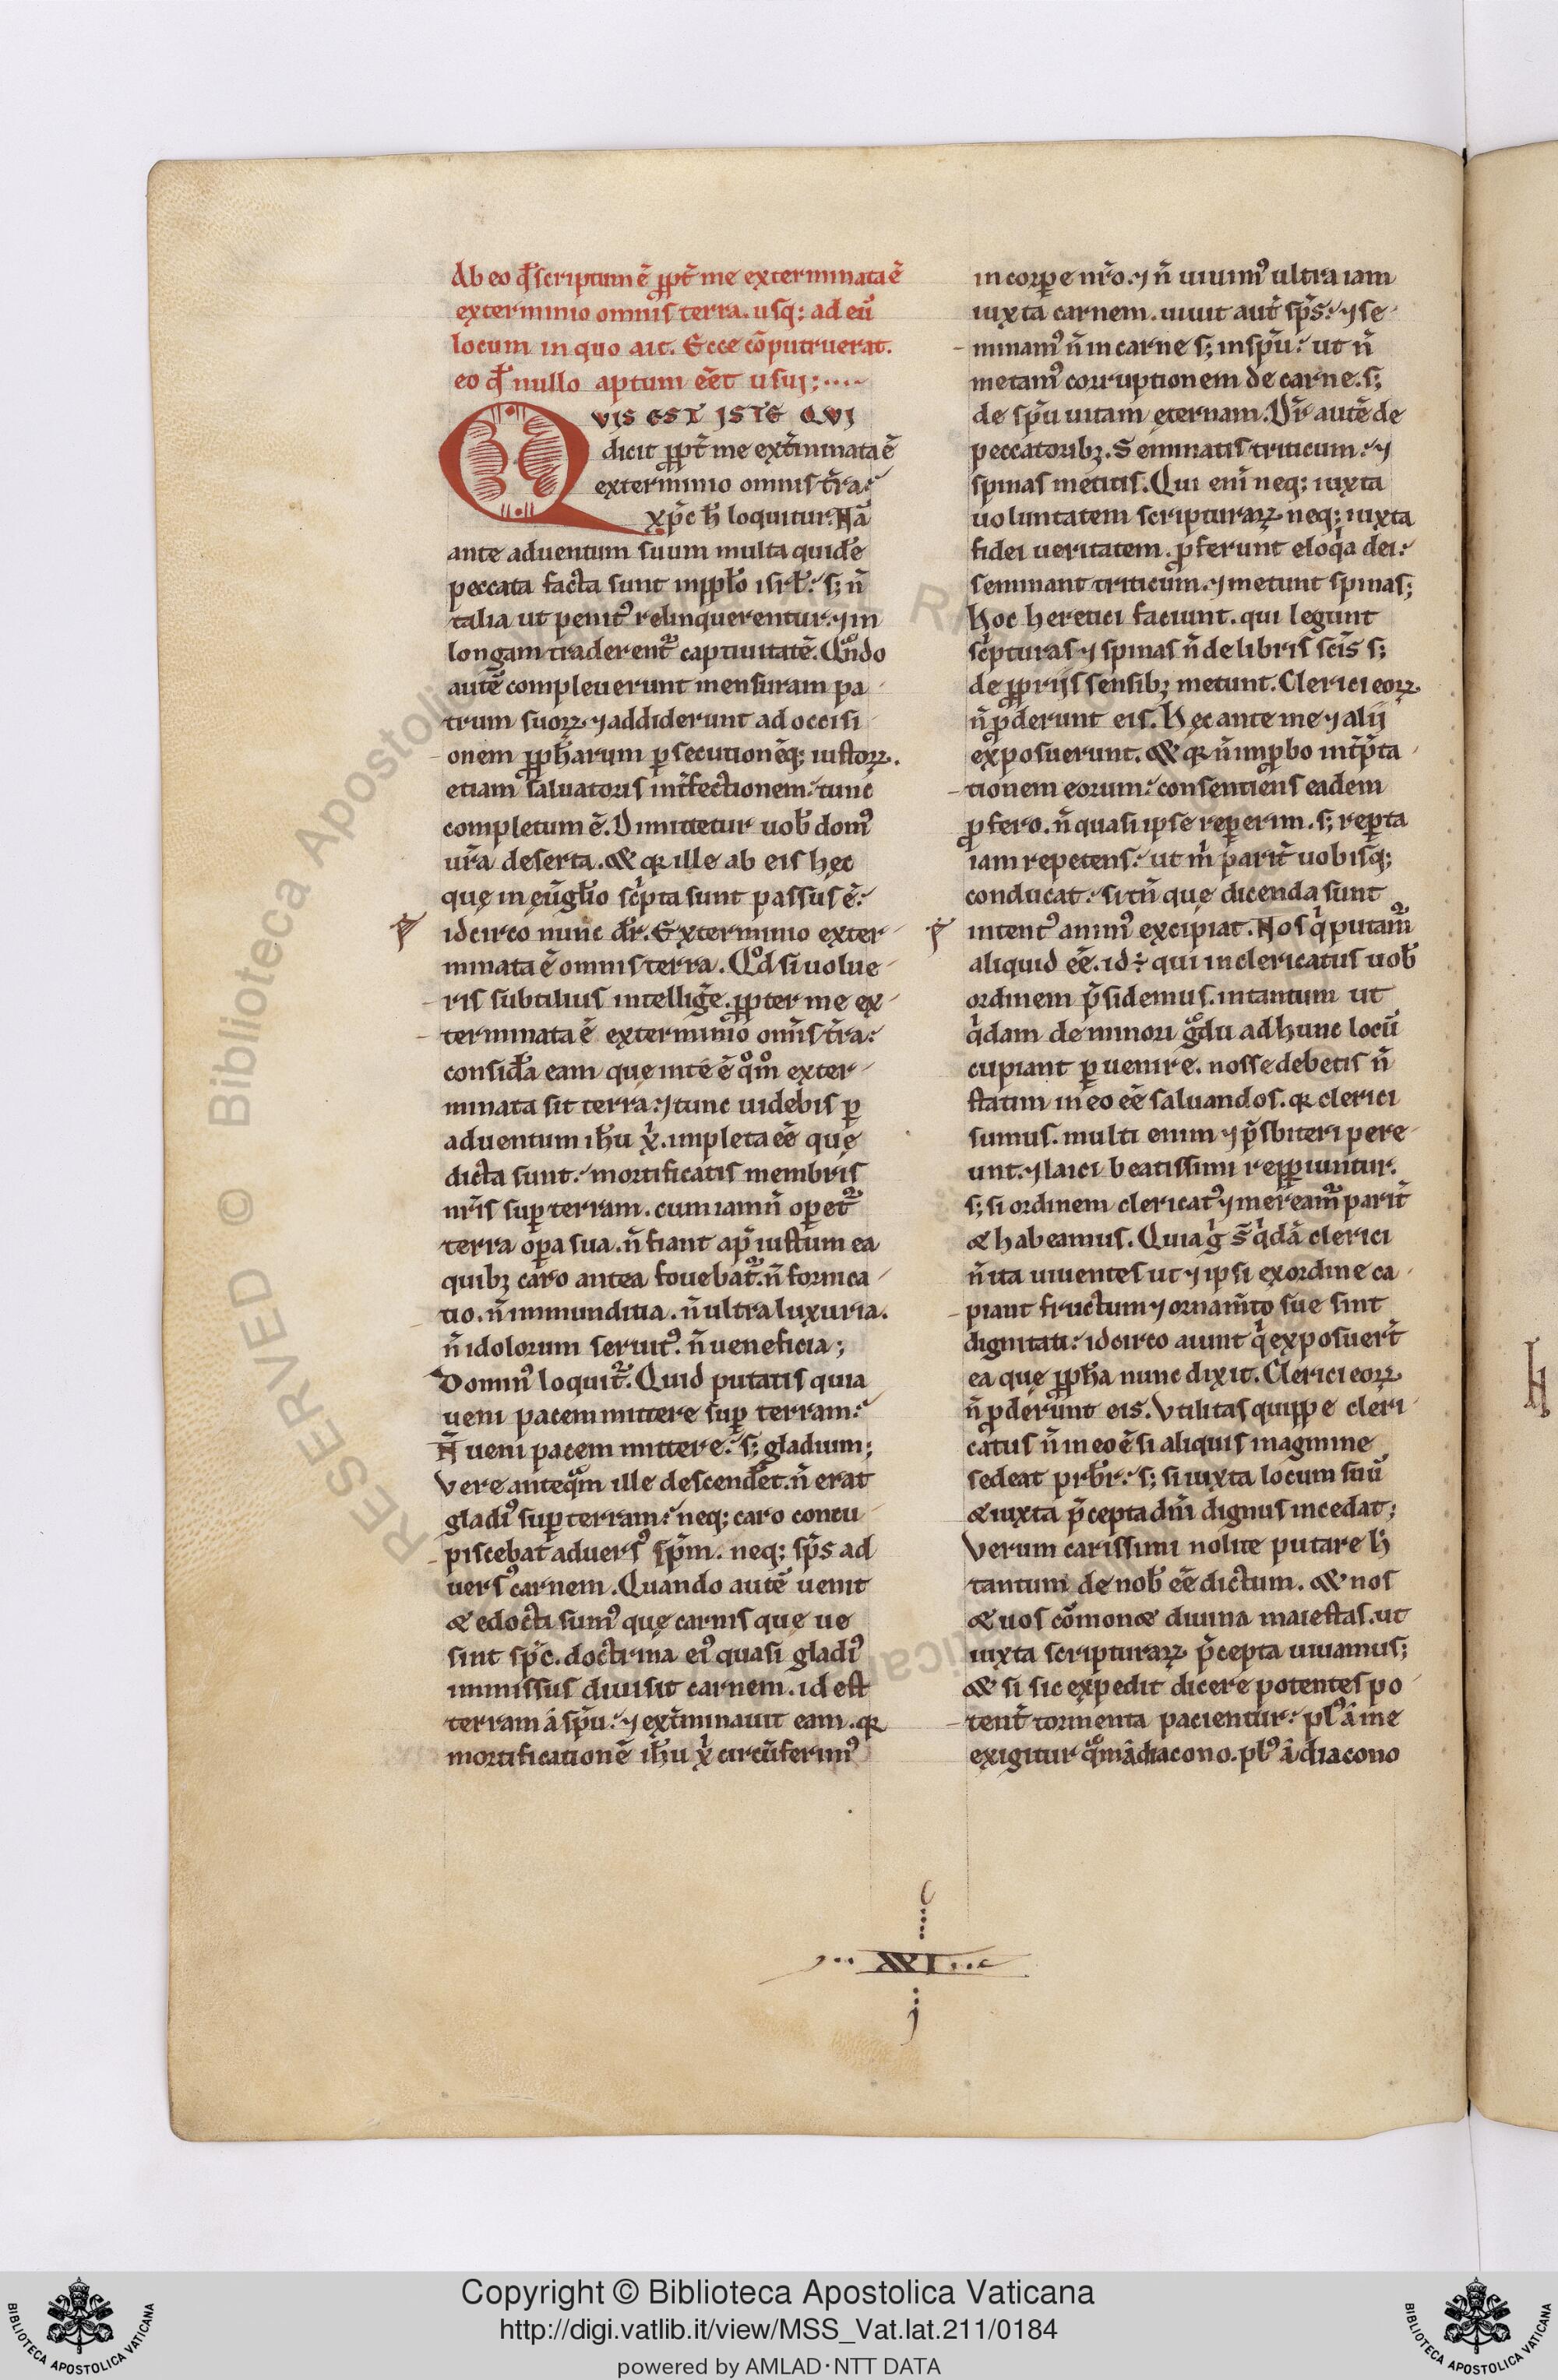 Ab eo qđ scriptum ē ꝓpt̄ me exterminata ē
exterminio omnis terra. usq; ad eū
locum in quo ait. Ecce cōputruerat.
eo qđ nullo aptum eēt usui;....
QVIS EST ISTE QVI
dicit ꝓpt̄ me ext̄minata ē
exterminio omnis t̄ra.
xp̄c h̄ loquitur. Nā
ante aduentum suum multa quidē
peccata facta sunt in ppło isrł. s; n̄
talia ut penitꝰ relinquerentur. ⁊ in
longam traderent᷑ captiuitatē. Qn̄do
autē compleuerunt mensuram pa
trum suoꝝ. ⁊ addiderunt ad occisi
onem ꝓph̄arum ꝑsecutionēq; iustoꝝ.
etiam saluatoris int̄fectionem. tunc
completum ē. Dimittetur uob̄ domꝰ
ur̄a deserta. & qꝛ ille ab eis hęc
quę in eūgło sc̄pta sunt passus ē.
idcirco nunc dr̄. Exterminio exter
minata ē omnis terra. Qd̊ si uolue
ris subtilius intelliḡe. ꝓpter me ex
terminata ē exterminio om̄s t̄ra.
consid̄a eam quę in te ē qm̊ exter
minata sit terra. ⁊ tunc uidebis ꝑ
aduentum ih̄u x̄. impleta eē quę
dicta sunt. mortificatis membris
nr̄is suꝑ terram. cum iam n̄ oꝑet᷑
terra oꝑa sua. n̄ fiant ap̄ iustum ea
quibꝫ caro antea fouebat᷑. n̄ fornica
tio. n̄ immunditia. n̄ ultra luxuria.
n̄ idolorum seruitꝰ. n̄ ueneficia;
Domin̄ loquit᷑. Quid putatis quia
ueni pacem mittere suꝑ terram.
N̄ ueni pacem mittere. s; gladium;
Vere anteq̄m ille descend̄et. n̄ erat
gladiꝰ suꝑ terram. neq; caro concu
piscebat aduersꝰ sp̄m. neq; sp̄s ad
uersꝰ carnem. Quando autē uenit
& edocti sumꝰ quę carnis quę ue
sint sp̄c. doctrina eiꝰ quasi gladiꝰ
immissus diuisit carnem. id est
terram á sp̄u. ⁊ ext̄minauit eam. qꝛ
mortificationē ih̄u x̄ circūferimꝰ
in corꝑe nr̄o. ⁊ n̄ uiuimꝰ ultra iam
iuxta carnem. uiuit aut̄ sp̄s. ⁊ se
minamꝰ n̄ in carne s; in sp̄u. ut n̄
metamꝰ corruptionem de carne. s;
de sp̄u uitam ęternam. Dr̄ autē de
peccatoribꝫ. Seminatis triticum. ⁊
spinas metitis. Qui eni̅ neq; iuxta
uoluntatem scripturaꝝ neq; iuxta
fidei ueritatem. ꝓferunt eloq̇a dei.
seminant triticum. ⁊ metunt spinas;
Hoc heretici faciunt. qui legunt
sc̄pturas ⁊ spinas n̄ de libris sc̄is s;
de ꝓprijs sensibꝫ metunt. Clerici eoꝝ
n̄ ꝓderunt eis. Hęc ante me ⁊ alij
exposuerunt. & qꝛ n̄ imꝓbo int̄p̄ta
tionem eorum. consentiens eadem
ꝓfero. n̄ quasi ipse reꝑerim. s; reꝑta
iam repetens. ut m̄ parit̄ uobisq;
conducat. si tn̄ quę dicenda sunt
intentꝰ animꝰ excipiat. Nos q̇ putam᷑
aliquid eē. id÷ qui in clericatus uob̄
ordinem p̄sidemus. in tantum ut
q̇dam de minori gͦdu ad hunc locū
cupiant ꝑuenire. nosse debetis n̄
statim in eo eē saluandos. qꝛ clerici
sumus. multi enim ⁊ p̄sbiteri pere
unt. ⁊ laici beatissimi repꝑiuntur.
s; si ordinem clericatꝰ ⁊ meream᷑ parit̄
& habeamus. Quia g̊ s̄ q̇dā clerici
n̄ ita uiuentes ut ⁊ ipsi ex ordine ca
piant fructum ⁊ ornam̄to sue sint
dignitati. idcirco aiunt q̇ exposuer̄t
ea quę ꝓph̄a nunc dixit. Clerici eoꝝ
n̄ ꝓderunt eis. Vtilitas quippe cleri
catus n̄ in eo ē si aliquis in agmine
sedeat prb̄r. s; si iuxta locum suū
& iuxta p̄cepta dn̄i dignus incedat;
Verum carissimi nolite putare h̄
tantum de nob̄ eē dictum. & nos
& uos cōmon& diuina maiestas. ut
iuxta scripturaꝝ p̄cepta uiuamus;
& si sic expedit dicere potentes po
tent̄ tormenta pacientur. plꝰ á me
exigitur qͣm á diacono. plꝰ á diacono
XXI
RESERVED © Biblioteca Apostolica
Copyright © Biblioteca Apostolica Vaticana
http://digi.vatlib.it/view/MSS_Vat.lat.211/0184
powered by AMLAD·NTT DATA
BIBLIOTECA APOSTOLICA VATICANA
BIBLIOTECA APOSTOLICA VATICANA